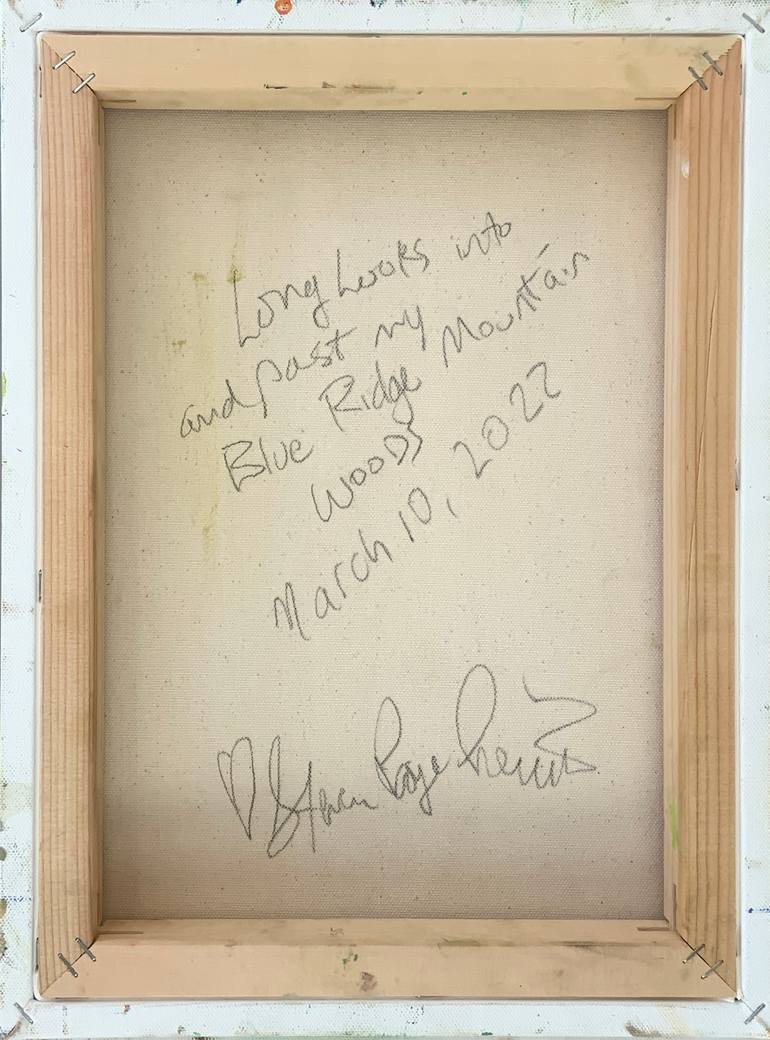 Long Looks into
and past my
Blue Ridge Mountain
Woods
March 10, 2022
Steven Page Prewitt